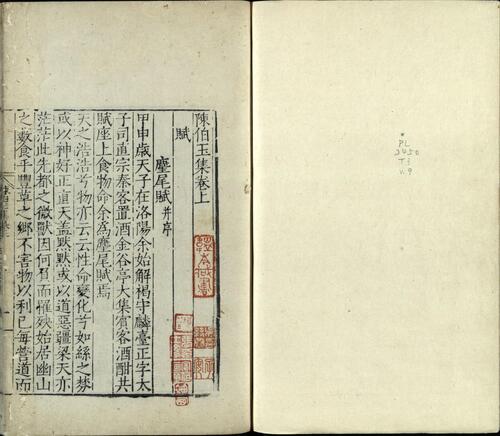 陳伯玉集卷上
賦
麈尾賦并序
甲申歲天子在洛陽余始解褐守麟臺正字太
子司直宗秦客置酒金谷亭大集賓客酒酣共
賦座上食物命余爲麈尾賦焉
天之浩浩兮物亦云云性命變化兮如絲之棼
或以神好正直天蓋默默或以道惡彊梁天亦
茫茫此先都之微獸因何負而罹殃始居幽山
之藪食乎豐草之鄉不害物以利己每營道而
PL
T3
v.9